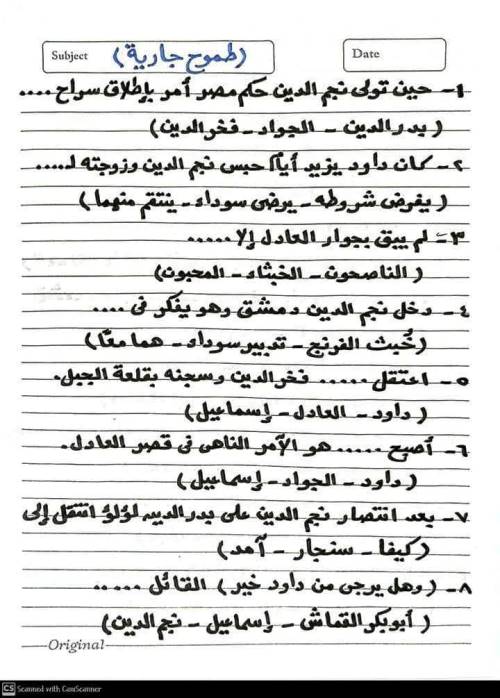 Subject (طموح جارية) Date
١- حين تولى نجم الدين حكم مصر أمر بإطلاق سراح ....
(بدر الدين - الجواد - فخر الدين)
٢- كان داود يزيد أيام حبس نجم الدين وزوجته لـ....
(يفرض شروطه - يرضى سوداء - ينتقم منهما)
٣- لم يبق بجوار العادل إلا .....
(الناصحون - الخبثاء - المحبون)
٤- دخل نجم الدين دمشق وهو يفكر فى ....
(خُبث الفرنج - تدبير سوداء - هما معًا)
٥- اعتقل ..... فخر الدين وسجنه بقلعة الجبل.
(داود - العادل - إسماعيل)
٦- أصبح ..... هو الآمر الناهى فى قصر العادل.
(داود - الجواد - إسماعيل)
٧- بعد انتصار نجم الدين على بدر الدين لؤلؤ انتقل إلى
(كيفا - سنجار - آمد)
٨- (وهل يرجى من داود خير) القائل .....
(أبو بكر القماش - إسماعيل - نجم الدين)
Original
CS Scanned with CamScanner